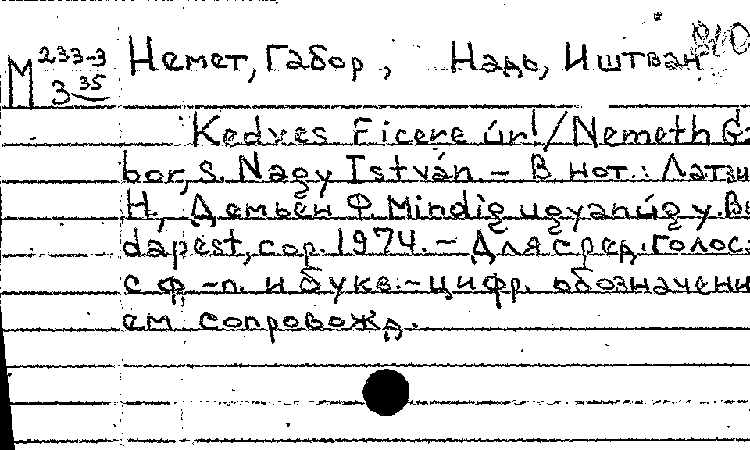 М 233-3 / 3 35
Немет, Габор, Надь, Иштван
Kedves Ficere úr! / Nemeth Ga
bor, s. Nagy István. – В нот.: Латзи
Н, Демьен Ф. Mindig ugyanúgy. Bu
dapest, cop. 1974. – Для сред. голос.
с ф-п. и букв.-цифр. обозначени
ем сопровожд.